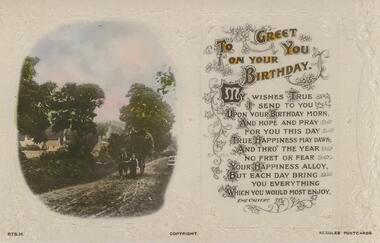 To Greet You
on your
Birthday.
My wishes True
I send to you
Upon your Birthday morn,
And hope and pray
for you this day
True Happiness may dawn;
And thro' the year
no fret or fear
Your Happiness alloy,
But each day bring
you everything
Which you would most enjoy.
COPYRIGHT.
POSTCARDS